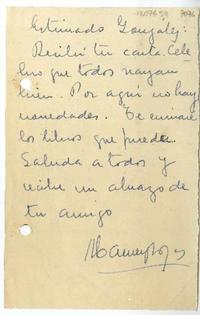 Estimado González:
Recibí tu carta. Cele
bro que todos vayan
bien. Por aquí no hay
novedades. Te enviaré
los libros que pueda.
Saluda a todos y
recibe un abrazo de
tu amigo